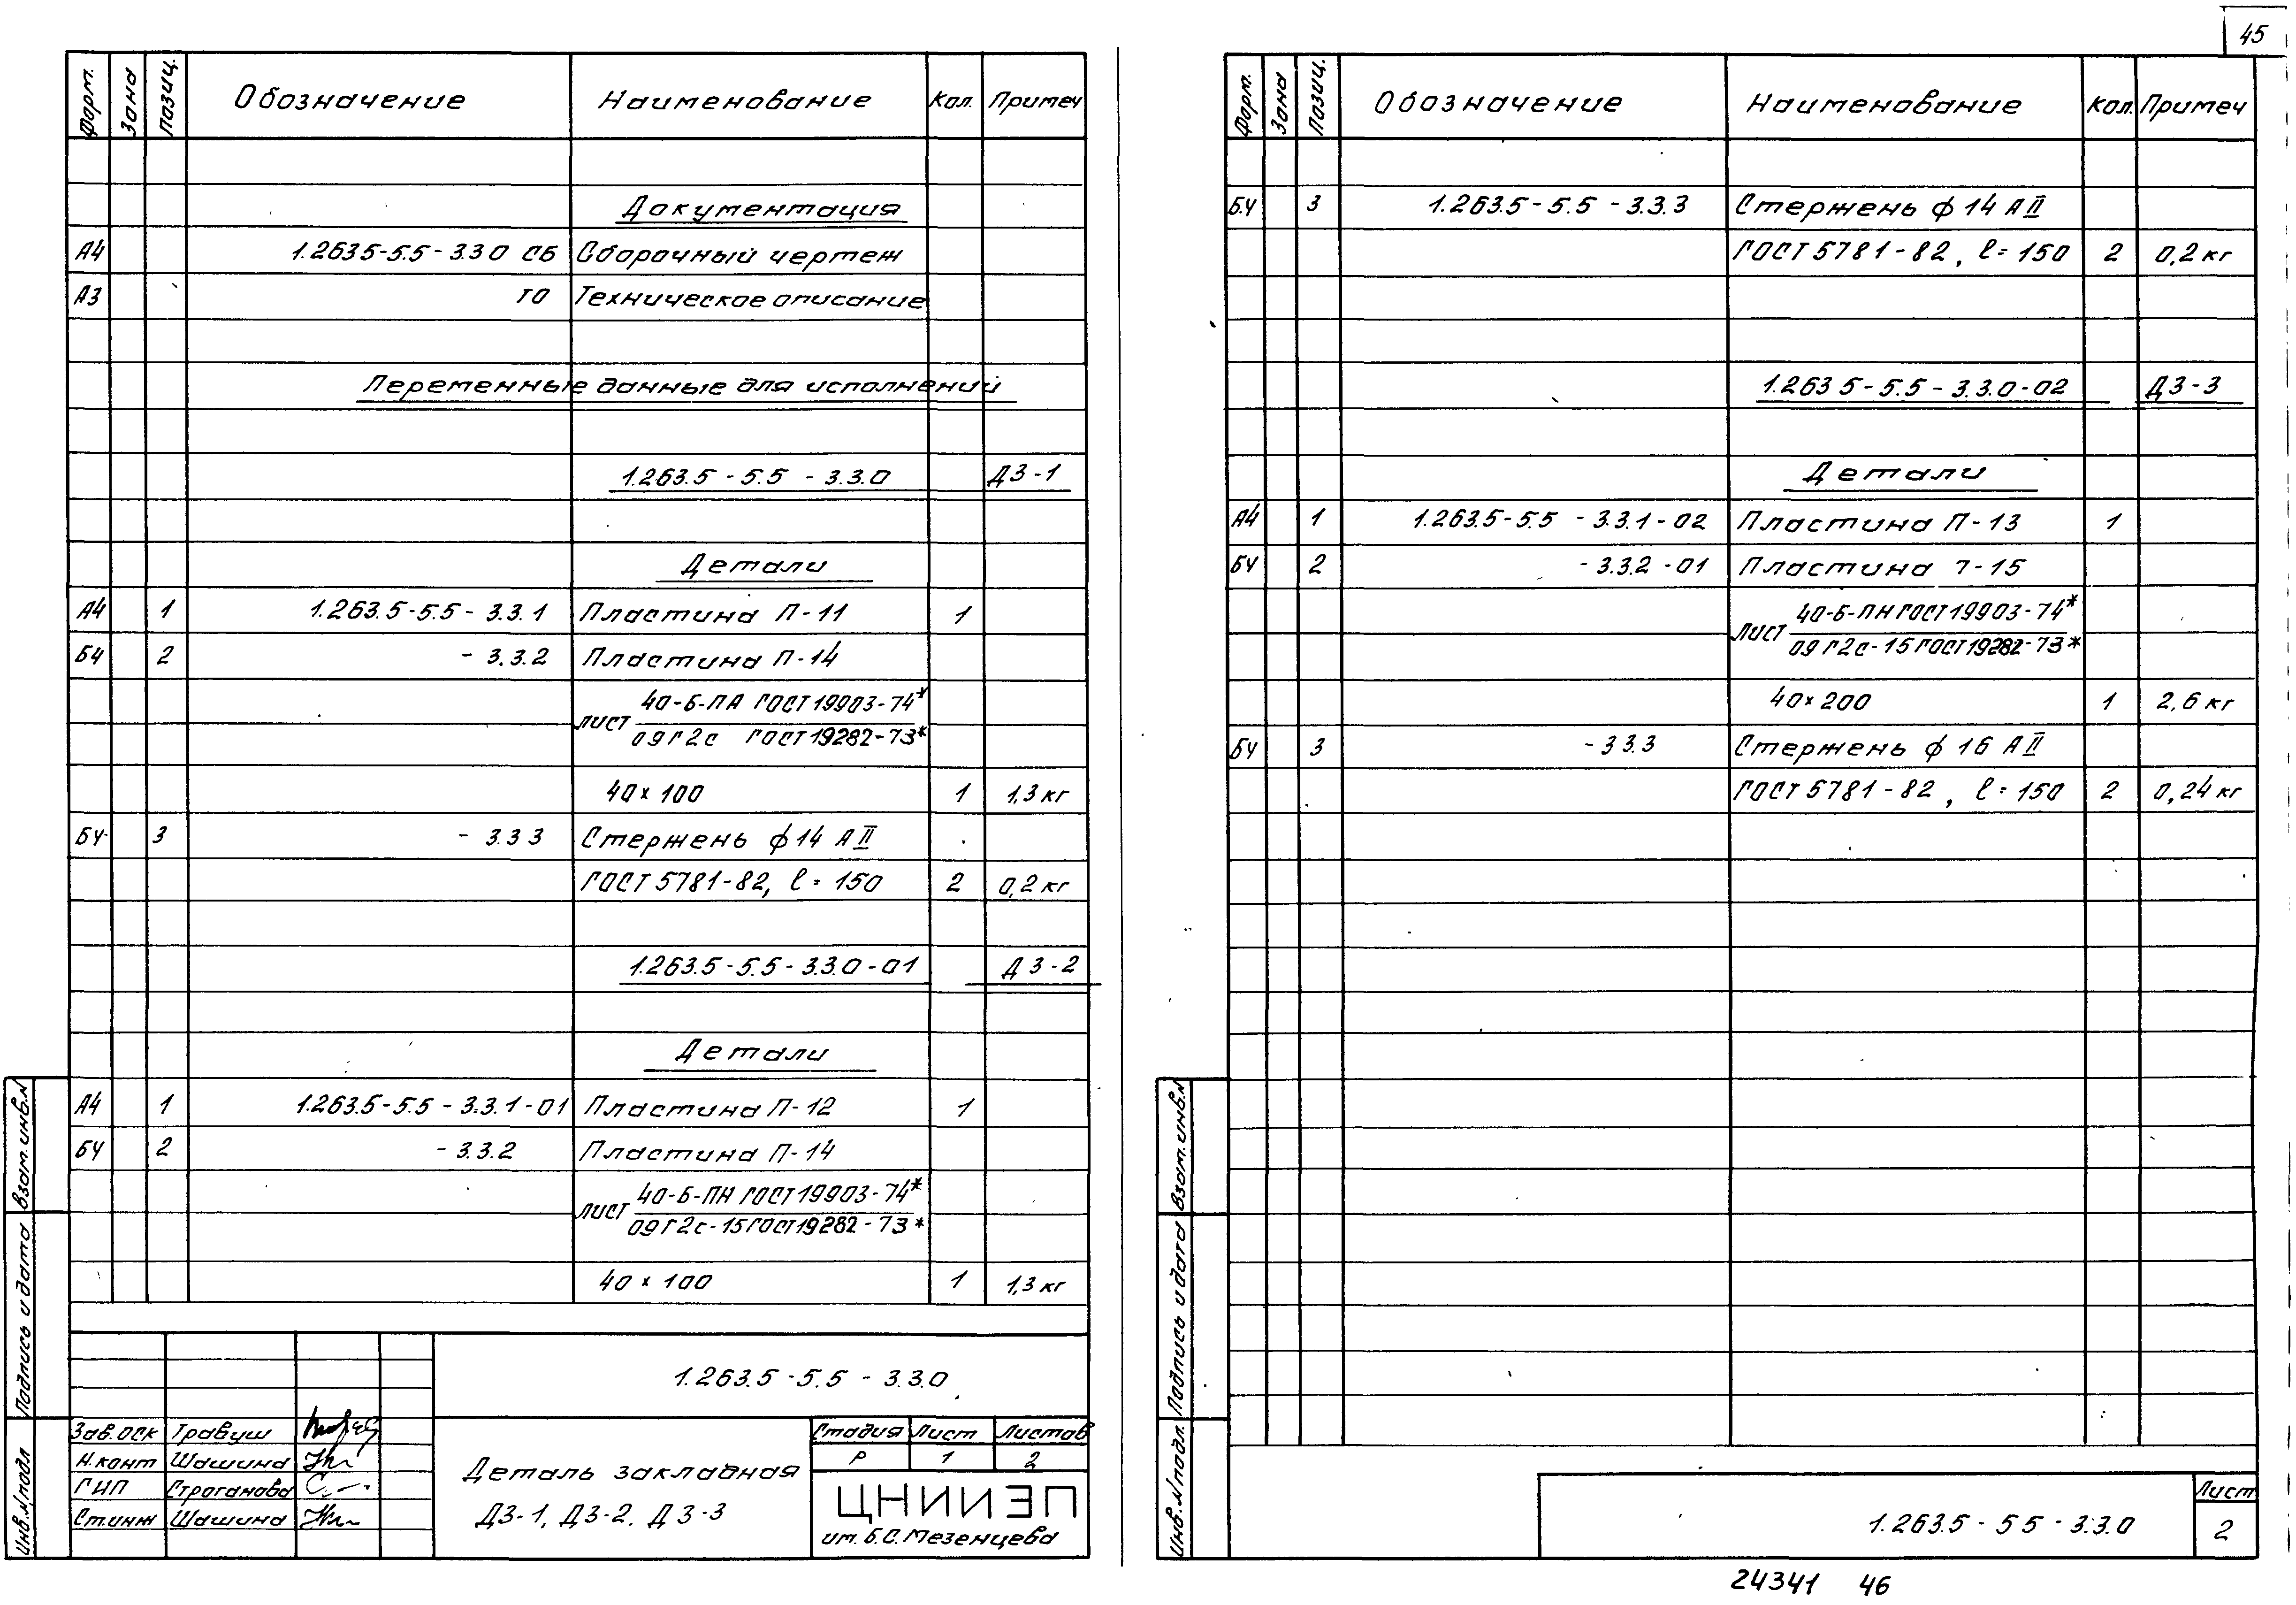 45
Форм. Зона Позиц. Обозначение Наименование Кол. Примеч
Документация
А4 1.263.5-5.5-3.3.0 СБ Сборочный чертеж
А3 ТО Техническое описание
Переменные данные для исполнений
1.263.5-5.5-3.3.0 ДЗ-1
Детали
А4 1 1.263.5-5.5-3.3.1 Пластина П-11 1
БЧ 2 -3.3.2 Пластина П-14
Лист 40-Б-ПА ГОСТ 19903-74*
09Г2С ГОСТ 19282-73*
40×100 1 1,3 кг
БЧ 3 -3.3.3 Стержень ϕ14 АII
ГОСТ 5781-82, ℓ=150 2 0,2 кг
1.263.5-5.5-3.3.0-01 ДЗ-2
Детали
А4 1 1.263.5-5.5-3.3.1-01 Пластина П-12 1
БЧ 2 -3.3.2 Пластина П-14
Лист 40-Б-ПН ГОСТ 19903-74*
09Г2С-15 ГОСТ 19282-73*
40×100 1 1,3 кг
1.263.5-5.5-3.3.0
Зав.ОСК Травуш
Н.конт Шашина
ГИП Строганова
Ст.инж Шашина
Деталь закладная
ДЗ-1, ДЗ-2, ДЗ-3
Стадия Лист Листов
Р 1 2
ЦНИИЭП
им. Б.С.Мезенцева
Инв.№подл Подпись и дата Взам.инв.№
Форм. Зона Позиц. Обозначение Наименование Кол. Примеч
БЧ 3 1.263.5-5.5-3.3.3 Стержень ϕ14 АII
ГОСТ 5781-82, ℓ=150 2 0,2 кг
1.263.5-5.5-3.3.0-02 ДЗ-3
Детали
А4 1 1.263.5-5.5-3.3.1-02 Пластина П-13 1
БЧ 2 -3.3.2-01 Пластина П-15
Лист 40-Б-ПН ГОСТ 19903-74*
09Г2С-15 ГОСТ 19282-73*
40×200 1 2,6 кг
БЧ 3 -3.3.3 Стержень ϕ16 АII
ГОСТ 5781-82, ℓ=150 2 0,24 кг
Инв.№подл. Подпись и дата Взам.инв.№
1.263.5-5.5-3.3.0
Лист
2
24341 46